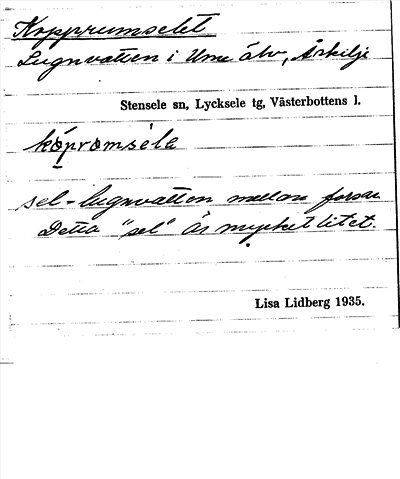 Kopprumselet
Lugnvatten i Ume älv, Årkilje
Stensele sn, Lycksele tg, Västerbottens l.
kópromséla
sel = lugnvatten mellan forsar
Detta "sel" är mycket litet.
Lisa Lidberg 1935.